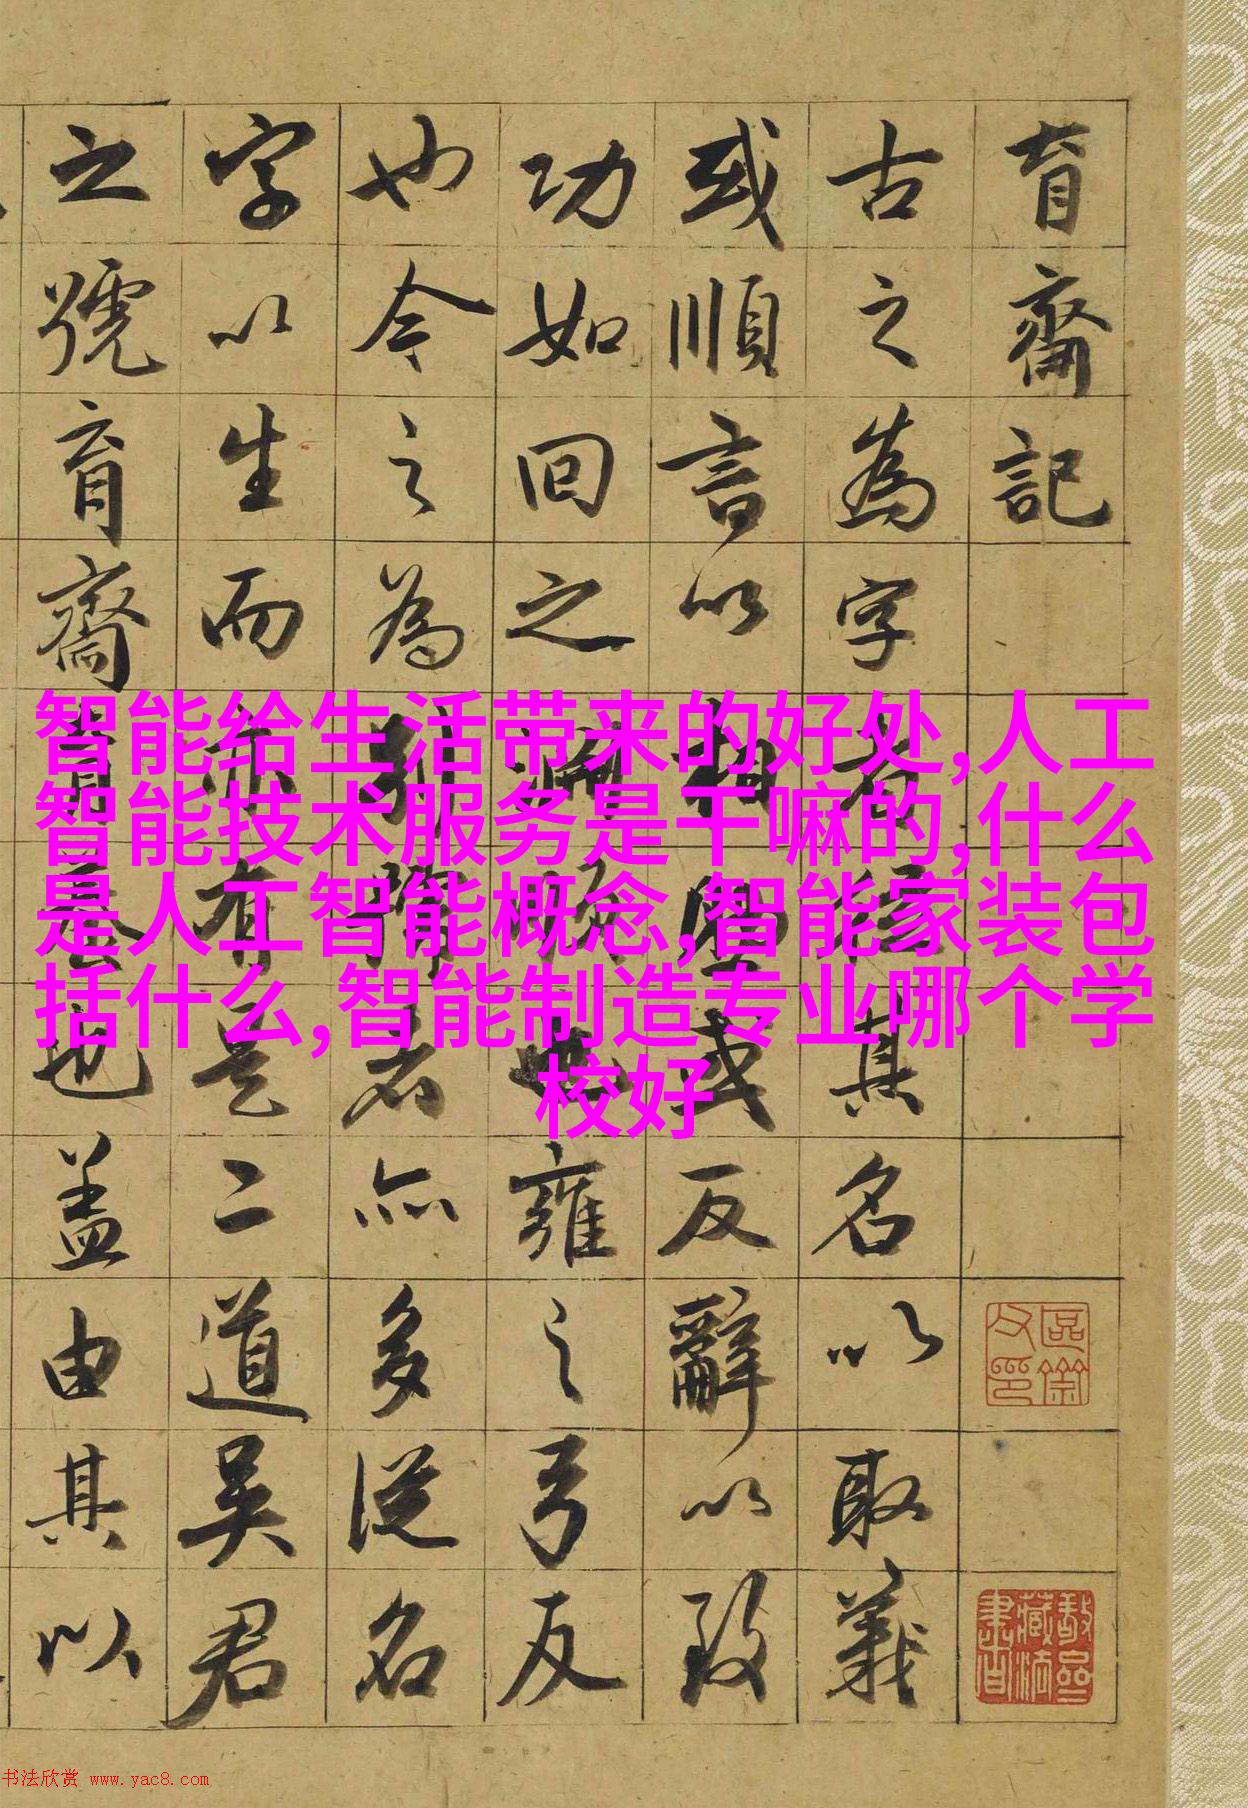 育齋記
古之為字者其名以取義
或順言以相或反辭以致
功如回之淵雍之弓反
也今之為別號者亦多從名
字以生而亦有是二道吳君
之號育齋也蓋由其以
智能给生活带来的好处,人工
智能技术服务是干嘛的,什么
是人工智能概念,智能家装包
括什么,智能制造专业哪个学
校好
书法欣赏 www.yac8.com